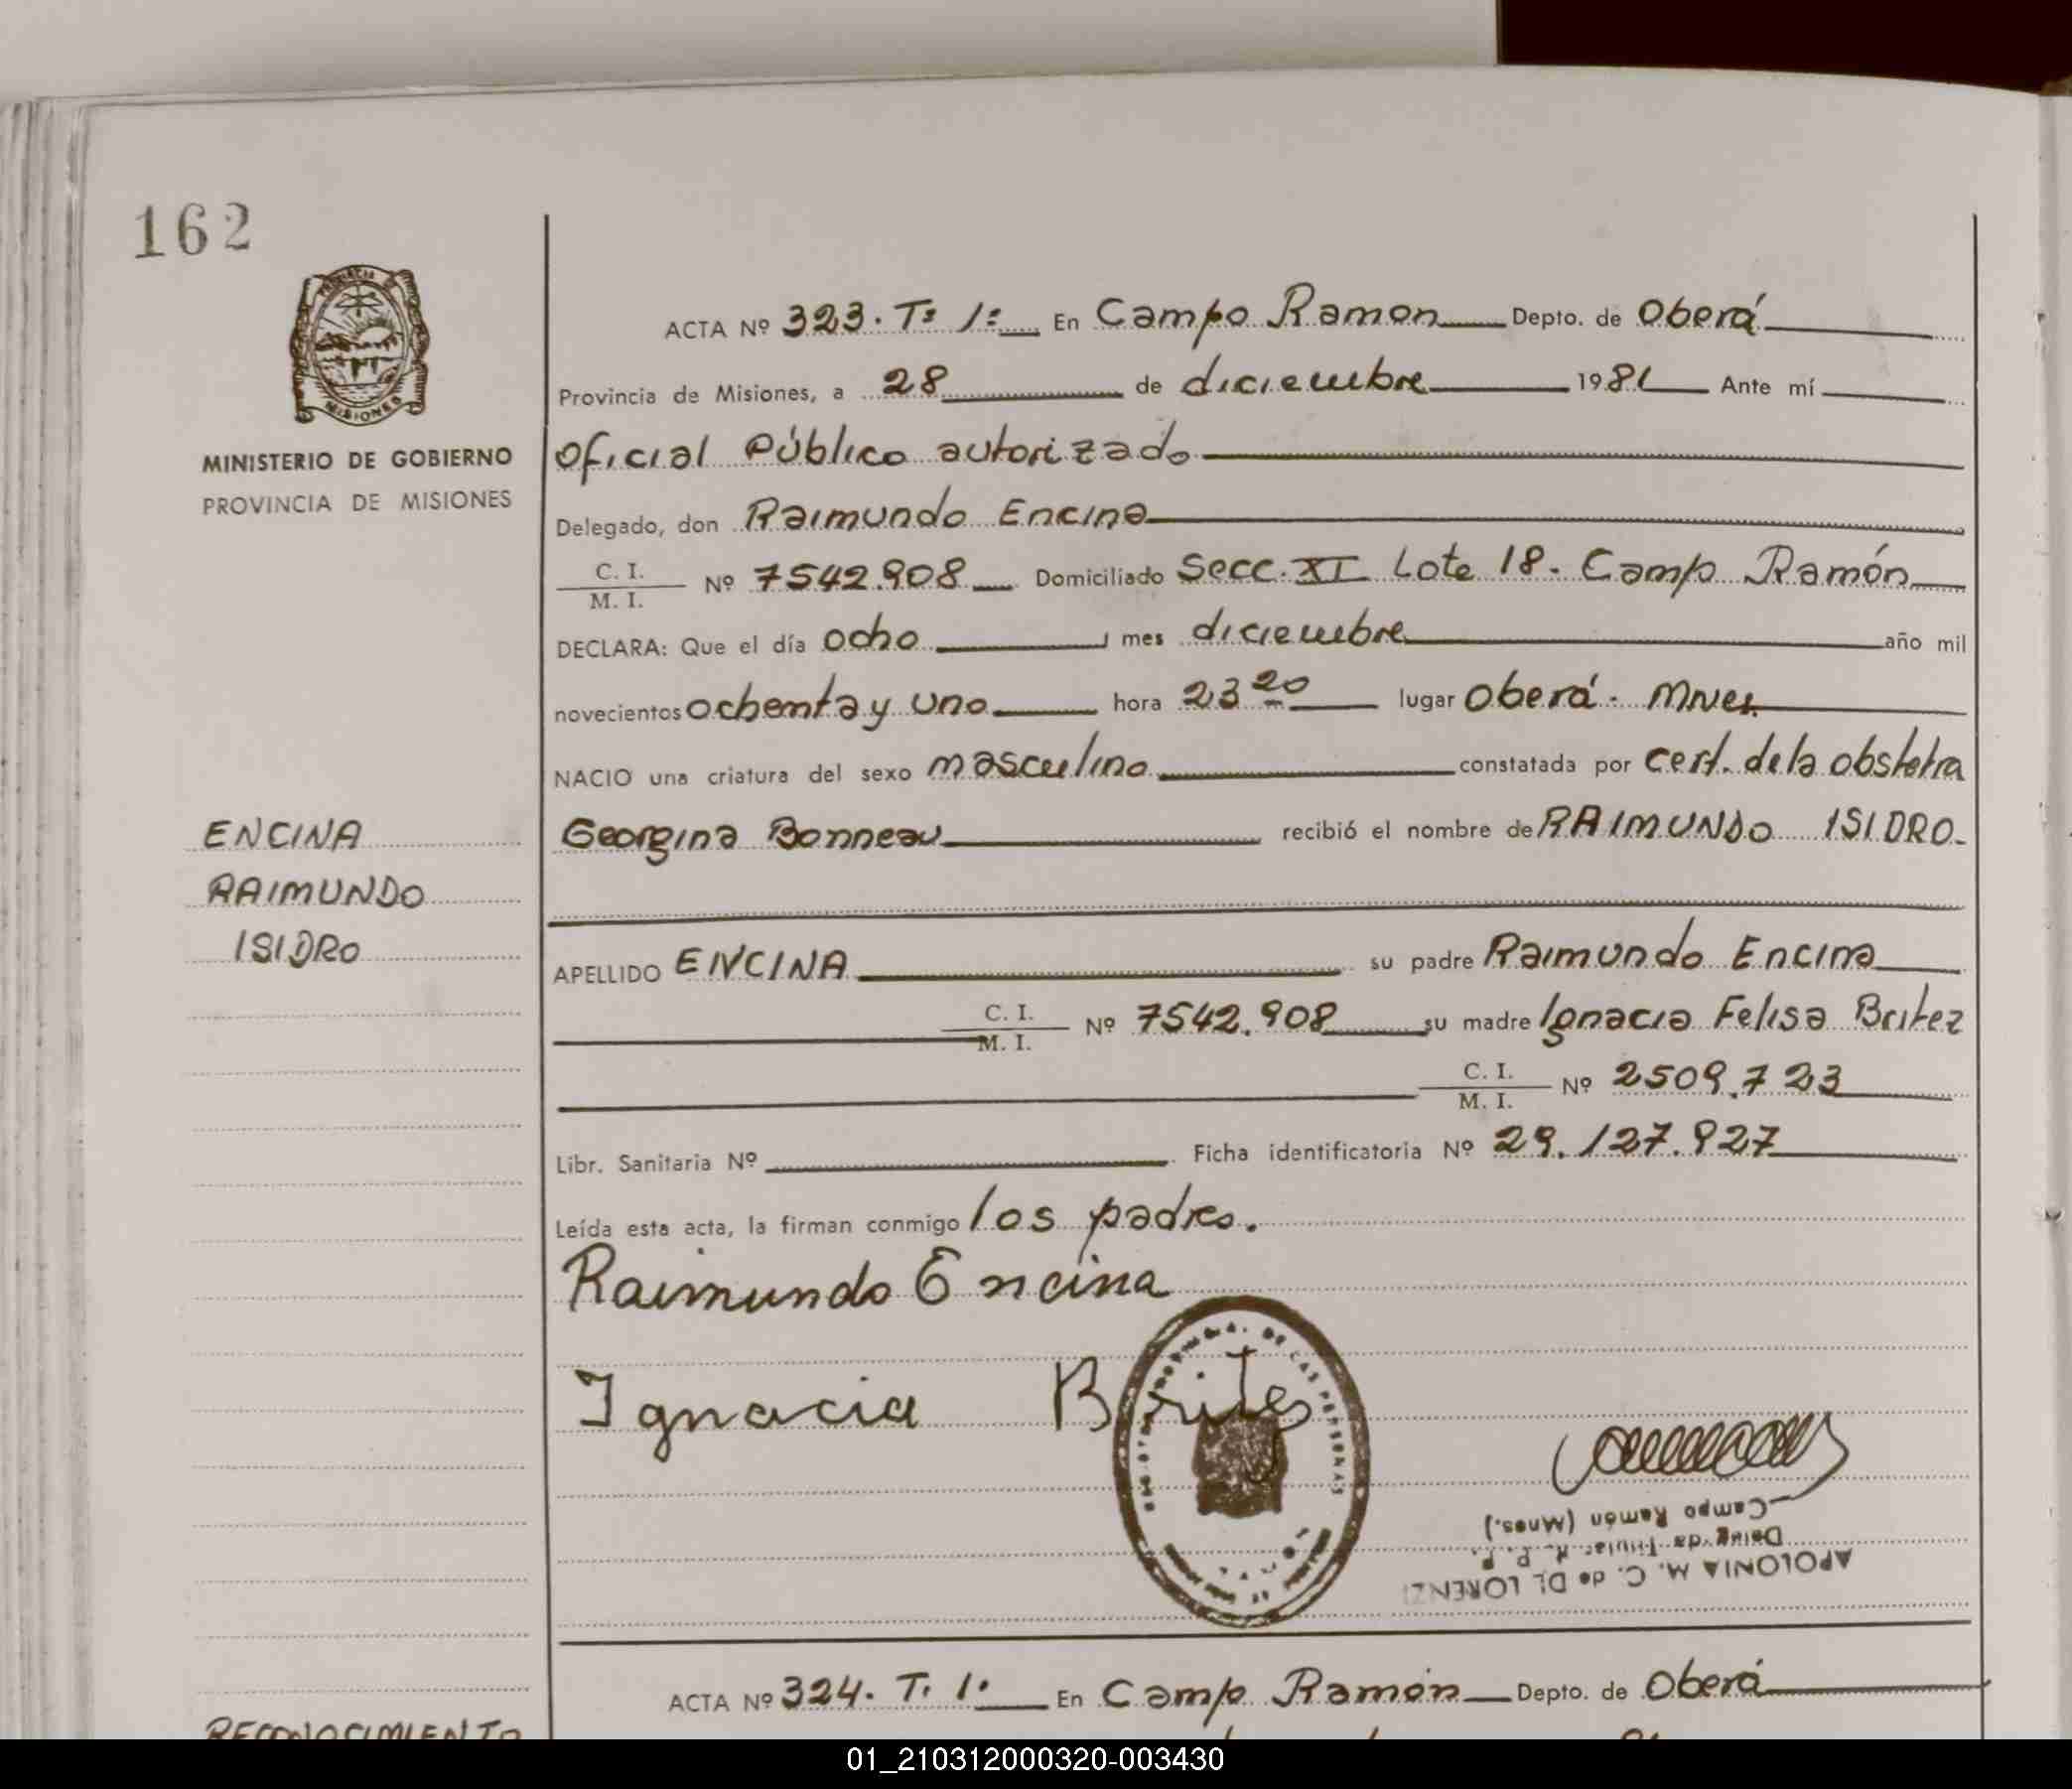 162
PROVINCIA
MISIONES
MINISTERIO DE GOBIERNO
PROVINCIA DE MISIONES
ENCINA
RAIMUNDO
ISIDRO
ACTA Nº 323. Tº 1º En Campo Ramon Depto. de Oberá
Provincia de Misiones, a 28 de diciembre 1981 Ante mí
Oficial Público autorizado
Delegado, don Raimundo Encina
C. I.
M. I. Nº 7542.908 Domiciliado Secc. XI Lote 18. Campo Ramón
DECLARA: Que el día ocho mes diciembre año mil
novecientos ochenta y uno hora 23 20 lugar Oberá. Mnes.
NACIO una criatura del sexo masculino constatada por cert. de la obstetra
Georgina Bonneau recibió el nombre de RAIMUNDO ISIDRO
APELLIDO ENCINA su padre Raimundo Encina
C. I.
M. I. Nº 7542.908 su madre Ignacia Felisa Britez
C. I.
M. I. Nº 2509.723
Libr. Sanitaria Nº Ficha identificatoria Nº 29.127.927
Leída esta acta, la firman conmigo los padres.
Raimundo Encina
Ignacia Britez
DE LAS PERSONAS
APOLONIA M. C. de DE LORENZI
Delegada Titular R. P. P.
Campo Ramón (Mnes.)
ACTA Nº 324. T. 1º En Campo Ramón Depto. de Oberá
RECONOCIMIENTO
01_210312000320-003430